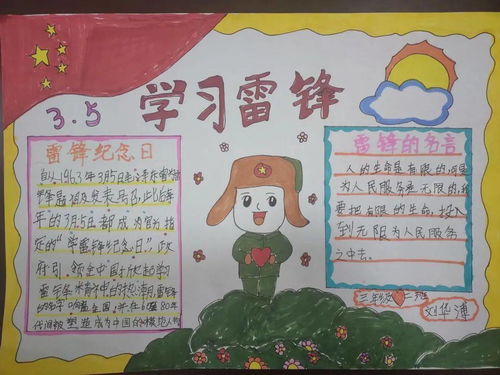 3.5
学习雷锋
雷锋纪念日
自从1963年3月5日毛泽东
发表后,此后每
年的3月5日都成为官方指
定的“学雷锋纪念日”,政
府引领全中国掀起学习
雷锋精神的热潮,雷锋
的名字响彻全国,并在60至80年
代间被塑造成为中国的模范人物
雷锋的名言
人的生命是有限的,可是
为人民服务是无限的,我
要把有限的生命,投入
到无限为人民服务
之中去。
三年级 二班
刘华溥